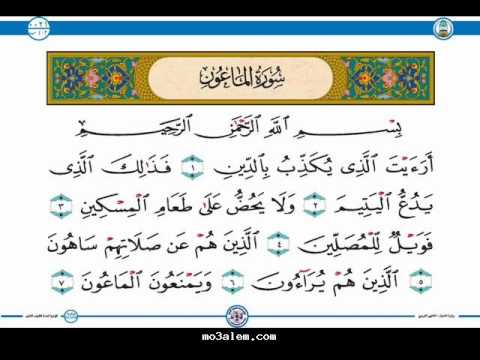 سُورَةُ المَاعُون
بِسْمِ اللَّهِ الرَّحْمَٰنِ الرَّحِيمِ
أَرَءَيْتَ الَّذِى يُكَذِّبُ بِالدِّينِ ١ فَذَٰلِكَ الَّذِى
يَدُعُّ الْيَتِيمَ ٢ وَلَا يَحُضُّ عَلَىٰ طَعَامِ الْمِسْكِينِ ٣
فَوَيْلٌ لِّلْمُصَلِّينَ ٤ الَّذِينَ هُمْ عَن صَلَاتِهِمْ سَاهُونَ
٥ الَّذِينَ هُمْ يُرَآءُونَ ٦ وَيَمْنَعُونَ الْمَاعُونَ ٧
mo3alem.com